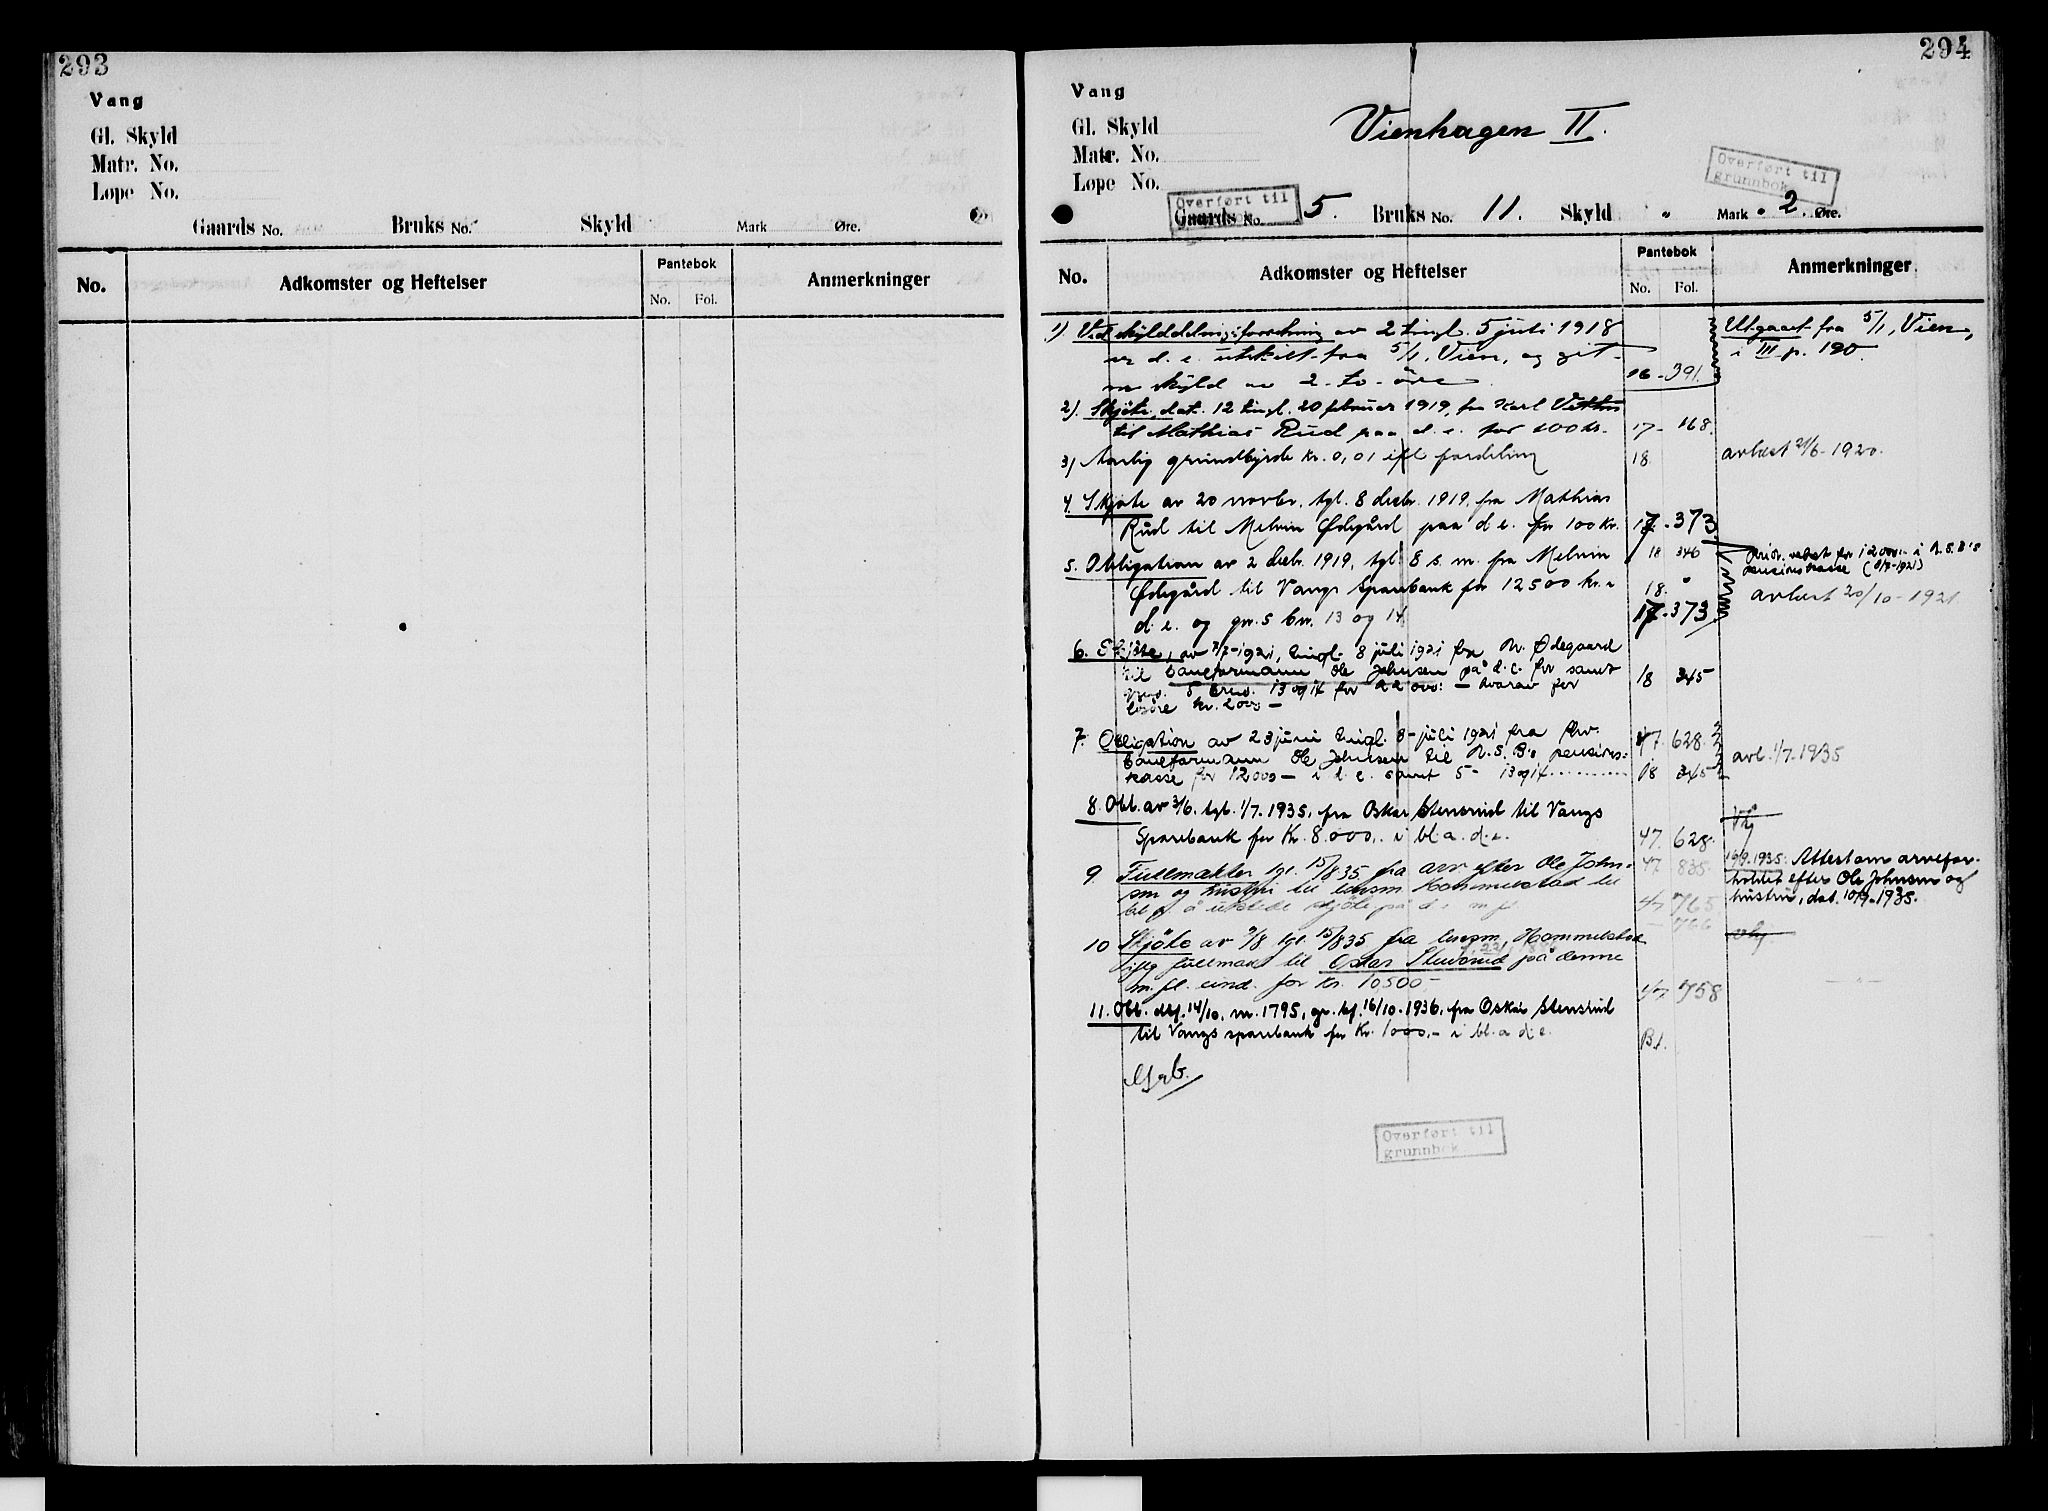 293
Vang
Gl. Skyld
Matr. No.
Løpe No.
Gaards No. Bruks No. Skyld Mark Øre.
No. Adkomster og Heftelser Pantebok No. Fol. Anmerkninger
294
Vang
Gl. Skyld
Vienhagen II.
Matr. No.
Løpe No.
Overført til
grunnbok
Overført til
Gaards No. 5. Bruks No. 11. Skyld " Mark " 2. Øre.
No. Adkomster og Heftelser Pantebok No. Fol. Anmerkninger
1) Ved skylddelingsforretning av 2 tingl. 5 juli 1918 Utgaaet fra 5/1, Vien,
er d. e. utskilt fra 5/1, Vien, og git i III p. 190.
en skyld av 2 - to - øre 16 - 391.
2). Skjøte, dat. 12 tingl. 20 februar 1919, fra Karl
til Mathias Rud paa d. e. for 100 kr. 17 - 168.
3) Aarlig grundbyrde kr. 0,01 ifl fordeling 18. avløst 21/6 - 1920.
4. Skjøte av 20 novbr. tgl. 8 decbr. 1919, fra Mathias
Rud til Melvin Ødegård paa d. e. for 100 kr. 17 - 373
5. Obligation av 2 decbr. 1919, tgl. 8 s. m. fra Melvin 18 346 prior. veket for 12000.- i N.S.B's
pensionskasse (8/7-1921)
Ødegård til Vangs Sparebank for 12500 kr. i 18. " avløst 20/10 - 1921
d. e. og gn. 5 bn. 13 og 14. 17 - 373
6. Skjøte, av 7/7-1921, tingl. 8 juli 1921 fra M. Ødegaard
til baneformann Ole Johnsen på d. e. for samt 18 345
gno. 5 bno. 13 og 14 for 22000: - hvorav for
løsøre kr. 2000 -
7. Obligation av 23 juni tingl. 8 - juli 1921 fra 47. 628.
baneformann Ole Johnsen til N. S. B's pensions= avl. 1/7-1935
kasse for 12000 - i d. e. samt 5 - 13 og 14 18 345
8. Obl. av 3/6. tgl. 1/7. 1935, fra Oskar Stensrud til Vangs
Sparebank for Kr. 8.000,- i bl. a. d. e. 47. 628.
9. Fullmakter tgl. 15/8 35 fra arv. efter Ole John= 47 835. 19/9. 1935: Attest om arvefor-
sen og hustru til lensm Hommelstad til holdet efter Ole Johnsen og
bl. a. å utstede skjøte på d. e. m. fl. 47 765 hustru, dat. 10/9-1935.
766
10 Skjøte av 9/8 tgl. 15/8 35 fra lensm. Hommelstad
iflg fullmakt til Oskar Stensrud på denne
m. fl. eiend. for Kr. 10500.- 47 758
11. Obl. dbf. 14/10, nr. 1795, gr. bf. 16/10. 1936, fra Oskar Stensrud
til Vangs sparebank for Kr. 1000,- i bl. a d. e. B1.
Overført til
grunnbok